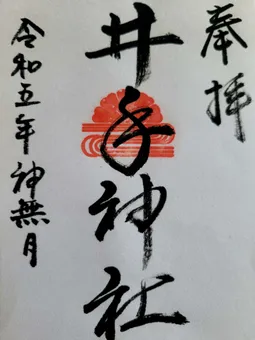 奉拝
井手神社
令和五年神無月